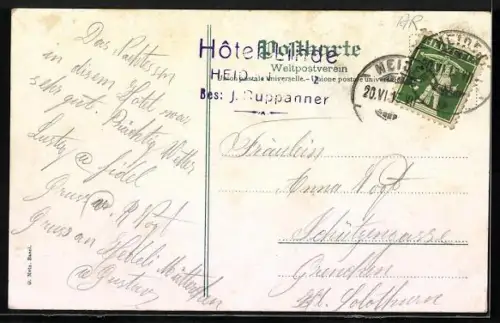 Das Mittagessen
in diesem Hotel war
sehr gut. Prächtig Wetter
Lustig & fidel
Gruss
Gruss an Hedeli Mütterchen
& Gustav
G. Metz, Basel.
AR
Postkarte
Weltpostverein
Union postale universelle. - Unione postale universale
Hôtel Linde
HEID
Bes: J. Ruppanner
HEIDEN
20.VI.
Fräulein
Anna Vogt
Schützengasse
Grenchen
Kt. Solothurn